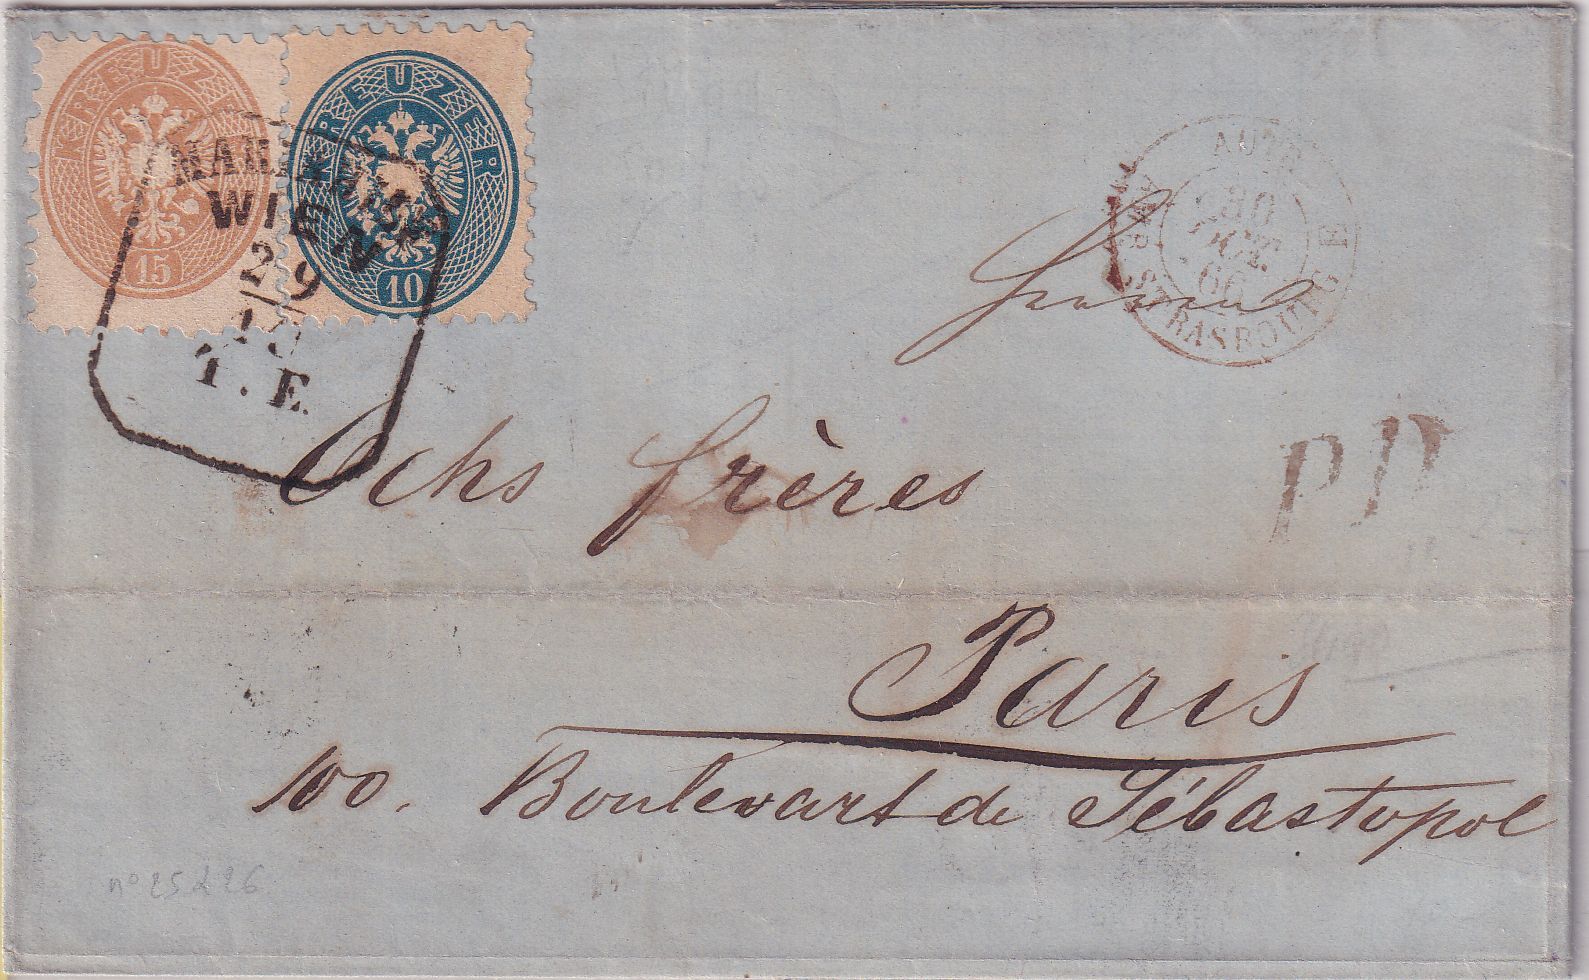 KREUZER
15
KREUZER
10
MARIAHILF
WIEN
29
10
7. E.
AUTR.
30
OCT.
66
STRASBOURG
Herren
Ochs frères
PD
Paris
100. Boulevart de Sébastopol
n° 25 & 26